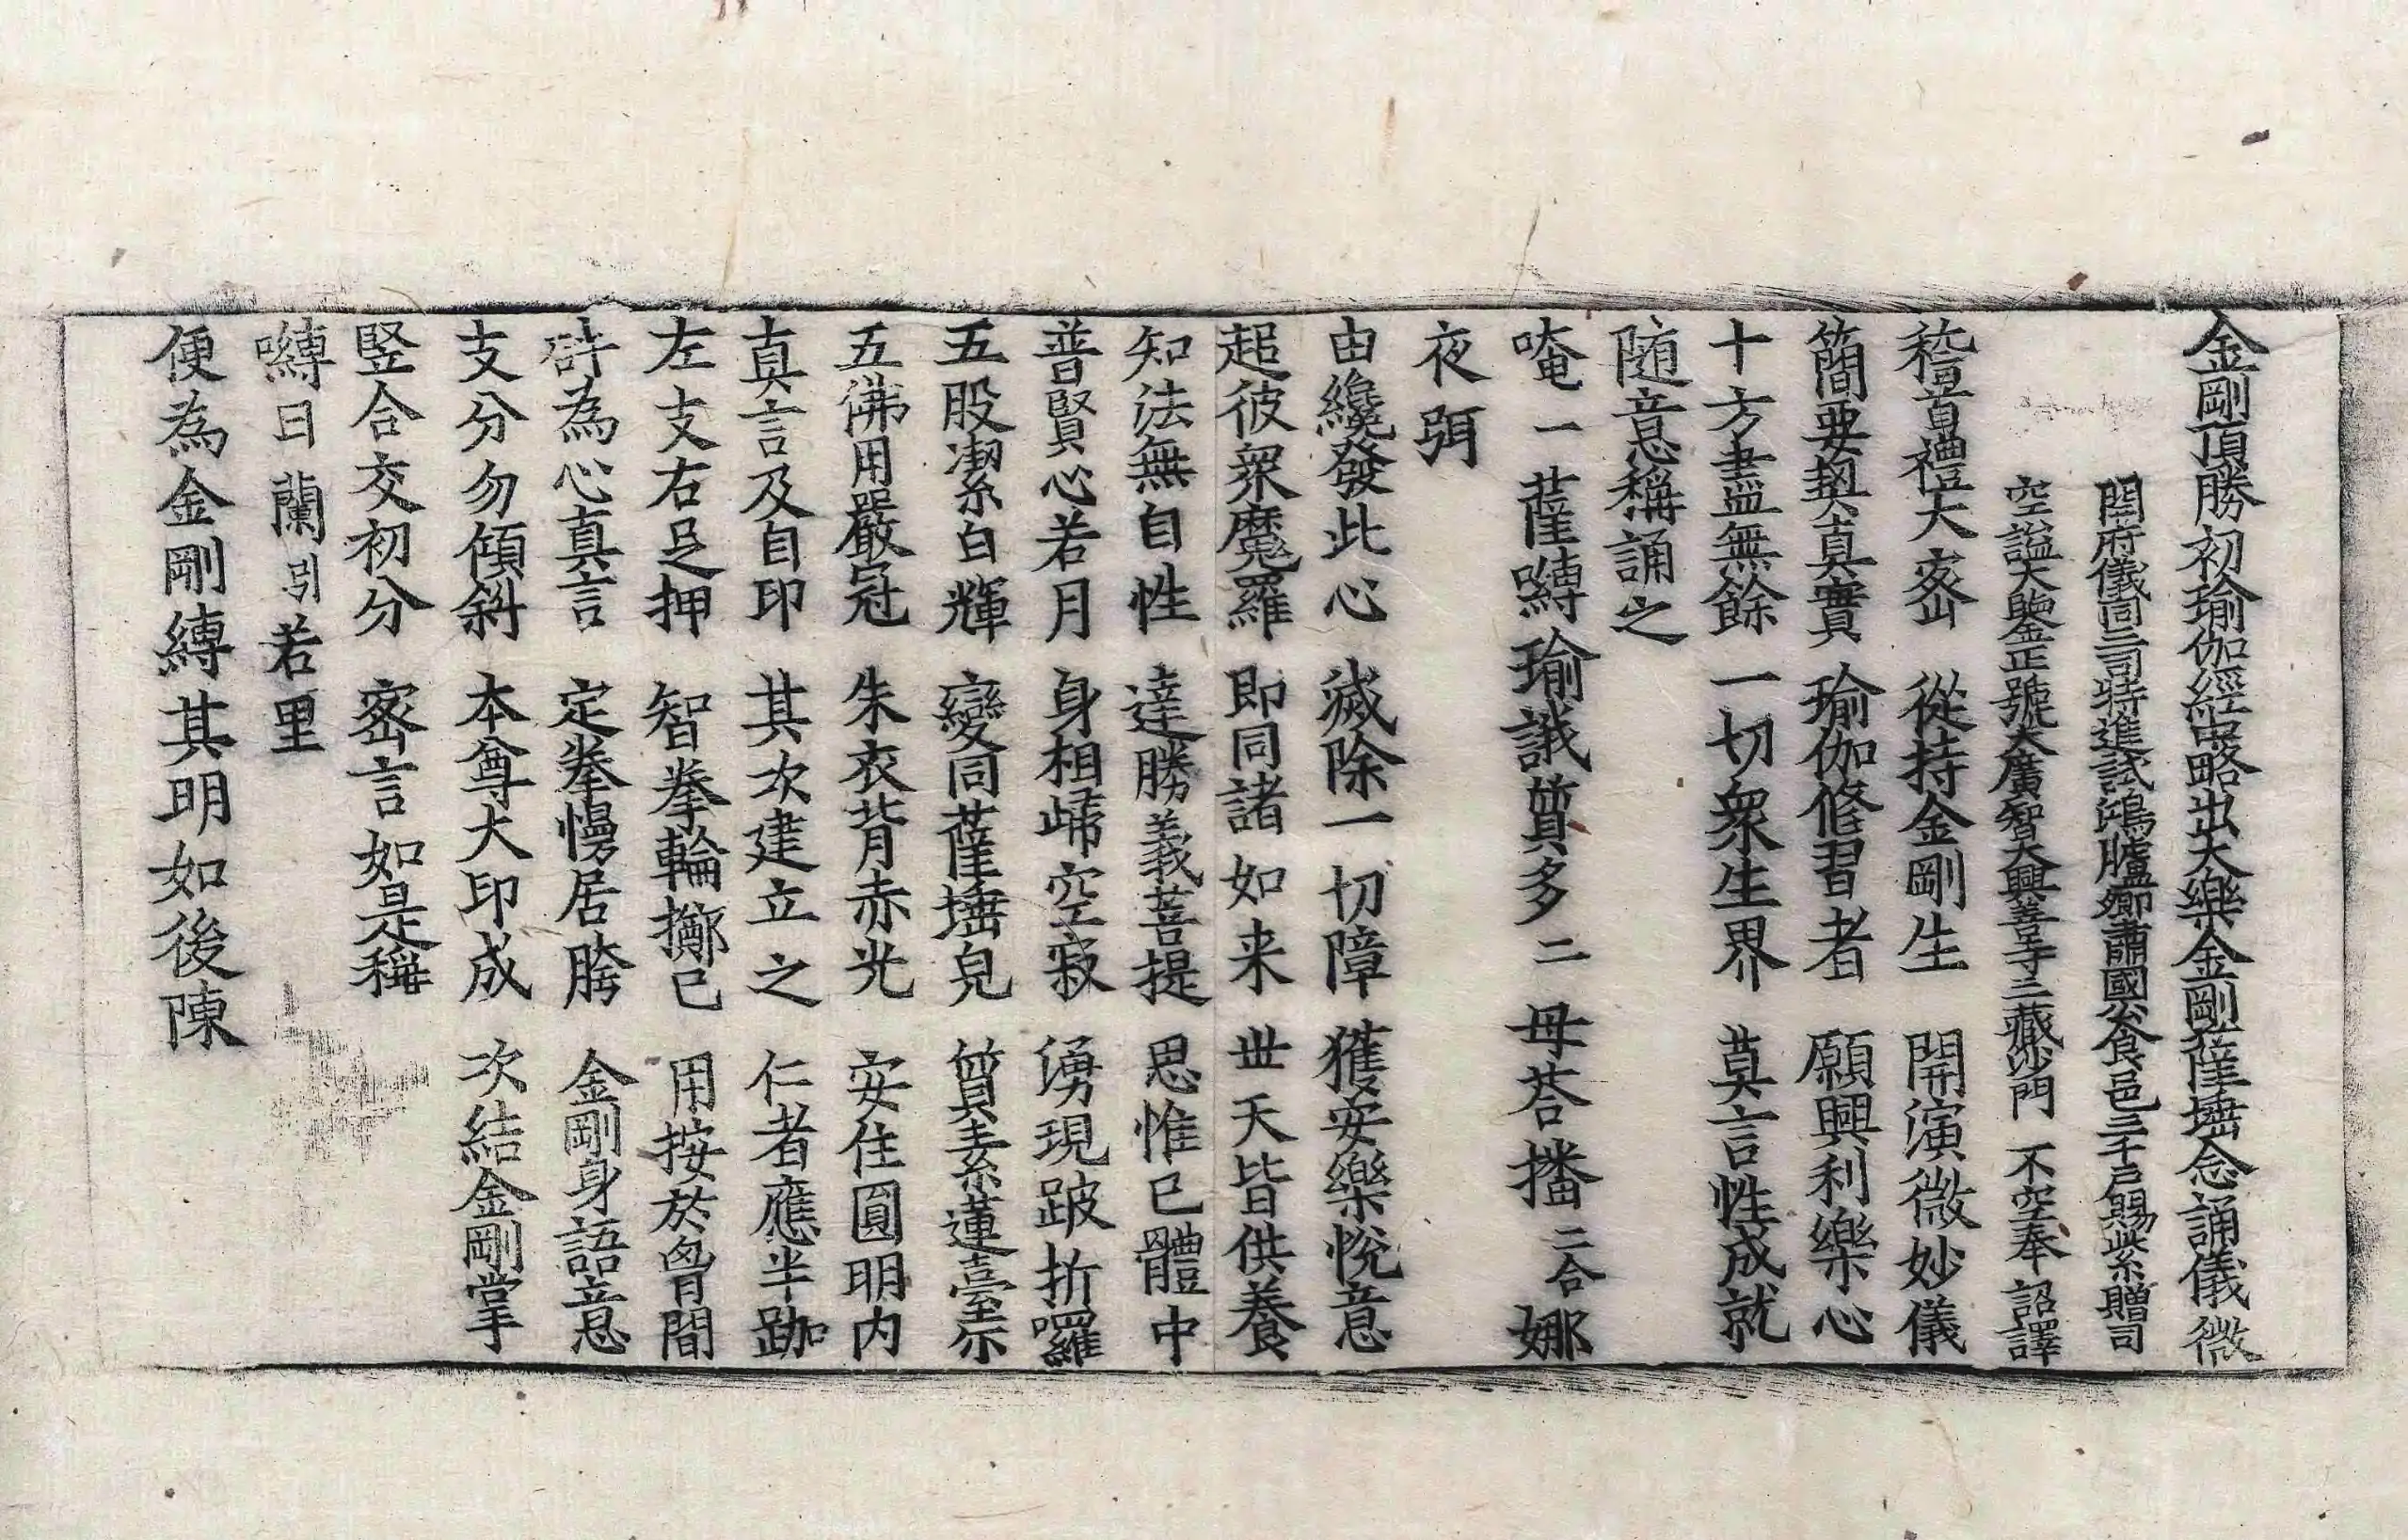 金剛頂勝初瑜伽經中略出大樂金剛薩埵念誦儀 微
開府儀同三司特進試鴻臚卿肅國公食邑三千戶賜紫贈司
空謚大鑒正號大廣智大興善寺三藏沙門 不空奉 詔譯
稽首禮大密 從持金剛生 開演微妙儀
簡要契真實 瑜伽修習者 願興利樂心
十方盡無餘 一切衆生界 莫言性成就
随意稱誦之
唵一薩嚩瑜誐質多二母荅播二合娜
夜弭
由纔發此心 滅除一切障 獲安樂悅意
超彼衆魔羅 即同諸如来 世天皆供養
知法無自性 達勝義菩提 思惟已體中
普賢心若月 身相歸空寂 湧現跛折囉
五股潔白輝 變同薩埵皃 質素蓮臺示
五佛用嚴冠 朱衣背赤光 安住圓明内
真言及自印 其次建立之 仁者應半跏
左支右足押 智拳輪擲已 用按於胷間
𤙖為心真言 定拳慢居胯 金剛身語意
支分勿傾斜 本尊大印成 次結金剛掌
竪合交初分 密言如是稱
嚩日蘭引若里
便為金剛縛其明如後陳